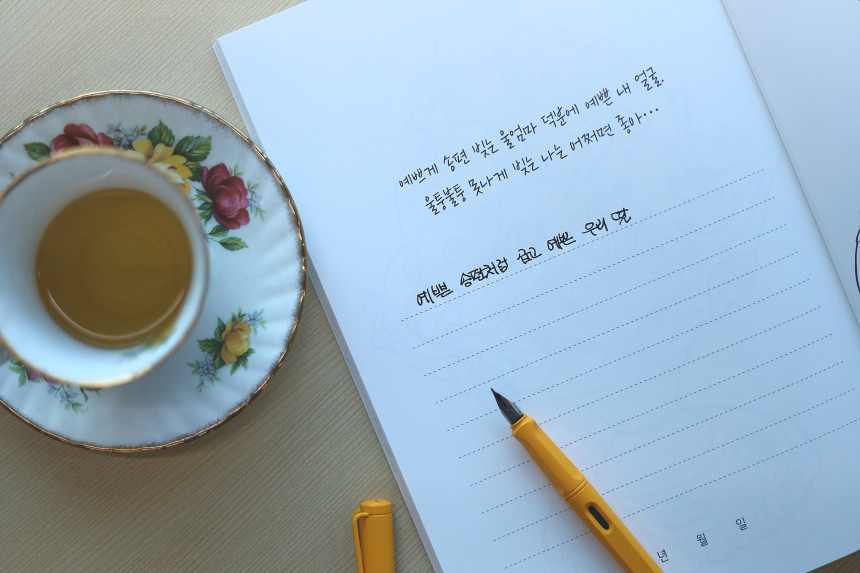 예쁘게 송편 빚는 울엄마 덕분에 예쁜 내 얼굴.
울퉁불퉁 못나게 빚는 나는 어쩌면 좋아...
예쁜 송편처럼 곱고 예쁜 우리 딸
년 월 일